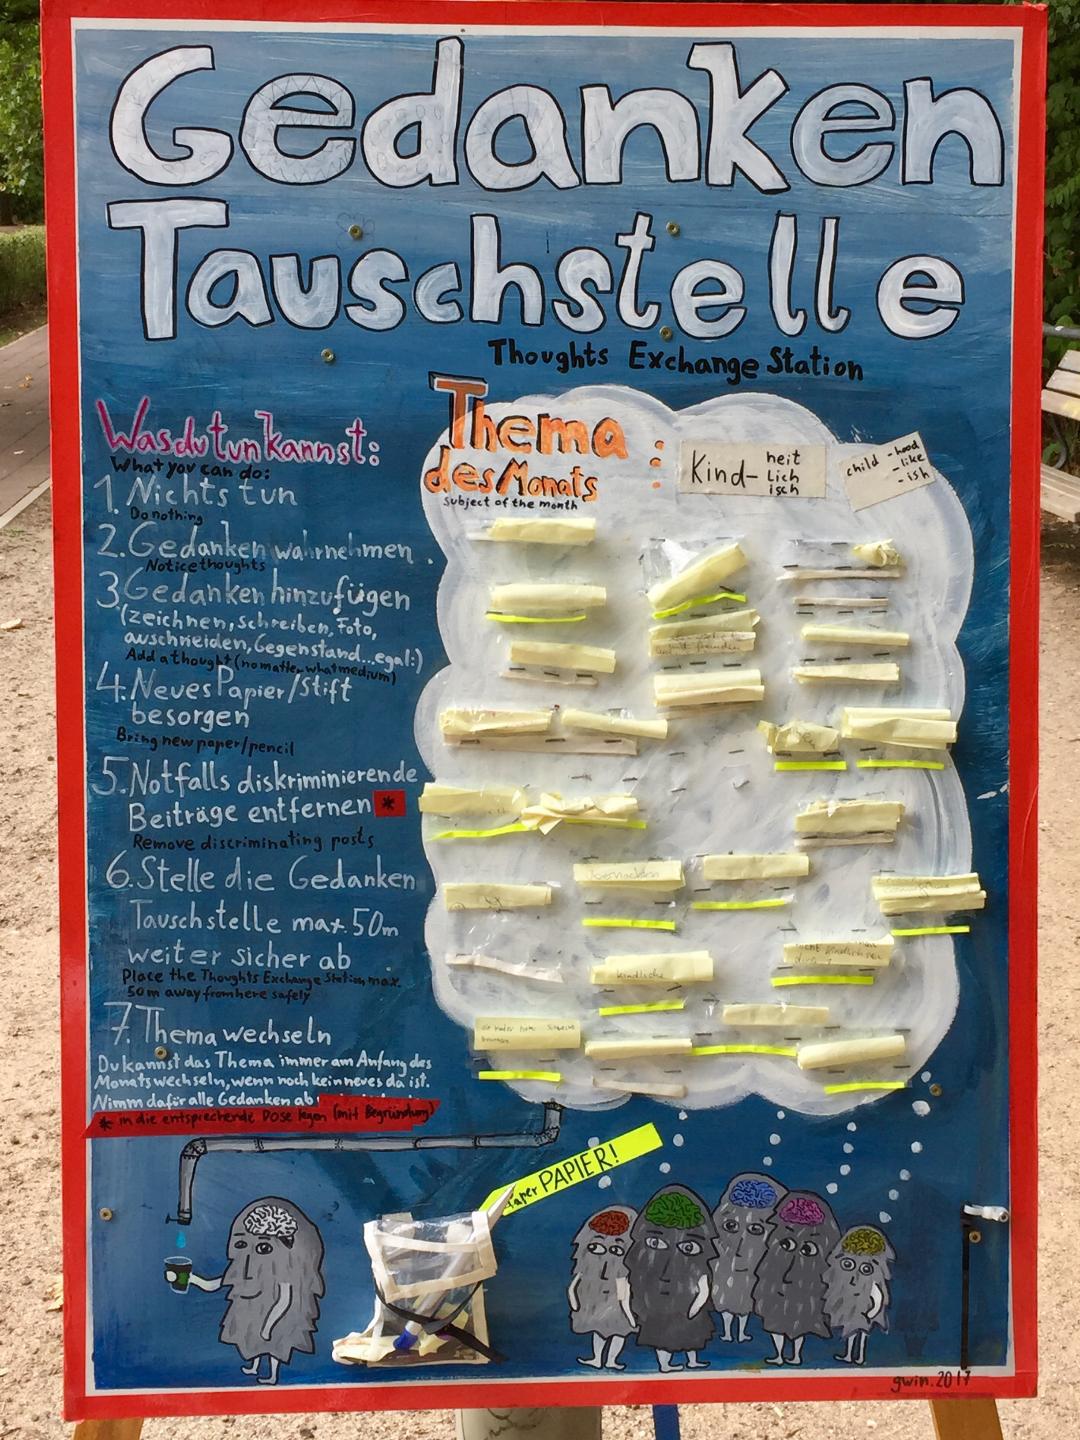 Gedanken
Tauschstelle
Thoughts Exchange Station
Was du tun kannst:
What you can do:
1. Nichts tun
Do nothing
2. Gedanken wahrnehmen
Notice thoughts
3. Gedanken hinzufügen
(zeichnen, schreiben, Foto,
auschneiden, Gegenstand...egal:)
Add a thought (no matter what medium)
4. Neues Papier/Stift
besorgen
Bring new paper/pencil
5. Notfalls diskriminierende
Beiträge entfernen *
Remove discriminating posts
6. Stelle die Gedanken
Tauschstelle max. 50m
weiter sicher ab
Place the Thoughts Exchange Station max.
50m away from here safely
7. Thema wechseln
Du kannst das Thema immer am Anfang des
Monats wechseln, wenn noch kein neues da ist.
Nimm dafür alle Gedanken ab
* in die entsprechende Dose legen (mit Begründung)
Thema
des Monats
:
subject of the month
Kind- heit
lich
isch
child -hood
-like
-ish
kindliche
Paper PAPIER!
gwin. 2017